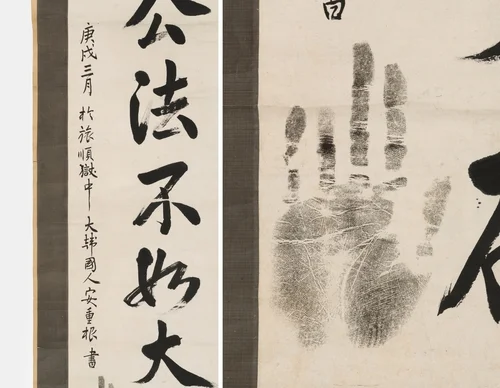 公法不如大
庚戌三月 於旅順獄中 大韓國人 安重根 書